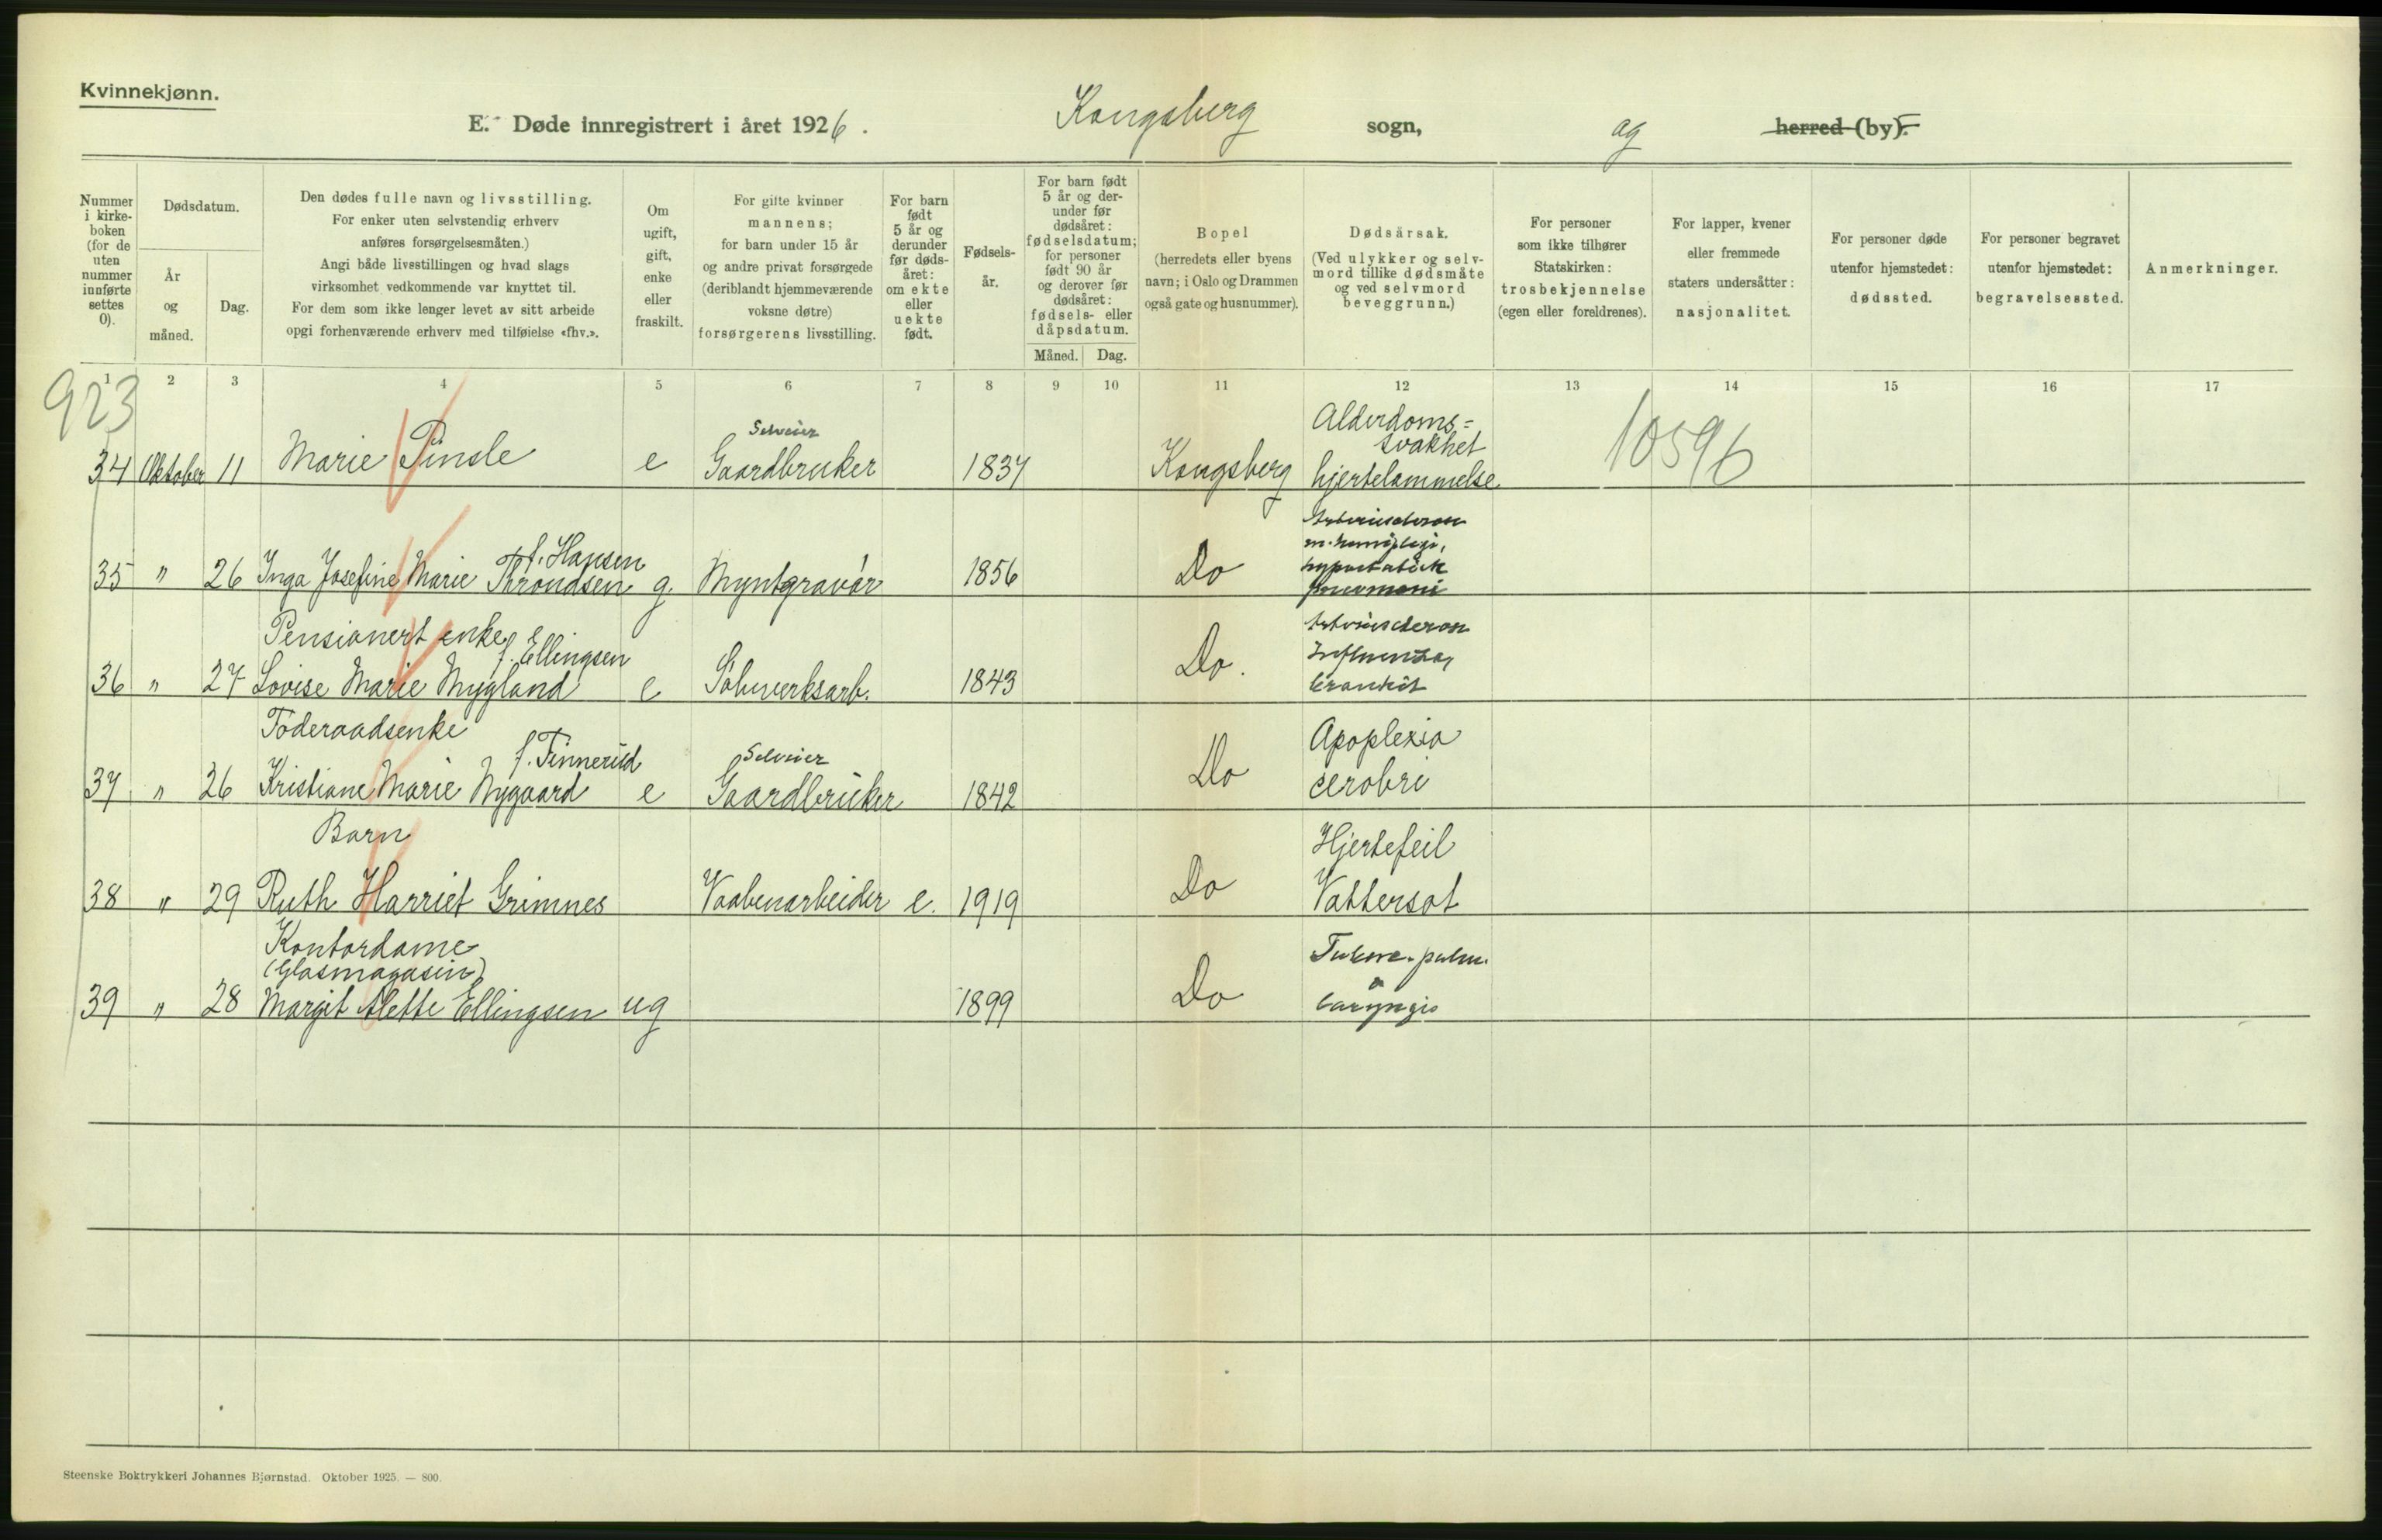 Kvinnekjønn.
E. Døde innregistrert i året 1926. Kongsberg sogn, og herred (by).
Nummer i kirkeboken (for de uten nummer innførte settes 0).
Dødsdatum.
År og måned.
Dag.
Den dødes fulle navn og livsstilling.
For enker uten selvstendig erhverv
anføres forsørgelsesmåten.)
Angi både livsstillingen og hvad slags
virksomhet vedkommende var knyttet til.
For dem som ikke lenger levet av sitt arbeide
opgi forhenværende erhverv med tilføielse «fhv.».
Om ugift, gift, enke eller fraskilt.
For gifte kvinner
mannens;
for barn under 15 år
og andre privat forsørgede
(deriblandt hjemmeværende
voksne døtre)
forsørgerens livsstilling.
For barn født 5 år og derunder før dødsåret: om ekte eller uekte født.
Fødselsår.
For barn født 5 år og derunder før dødsåret: fødselsdatum; for personer født 90 år og derover før dødsåret: fødsels- eller dåpsdatum.
Måned. Dag.
Bopel
(herredets eller byens
navn; i Oslo og Drammen
også gate og husnummer).
Dødsårsak.
(Ved ulykker og selv-
mord tillike dødsmåte
og ved selvmord
beveggrunn.)
For personer
som ikke tilhører
Statskirken:
trosbekjennelse
(egen eller foreldrenes).
For lapper, kvener
eller fremmede
staters undersåtter:
nasjonalitet.
For personer døde
utenfor hjemstedet:
dødssted.
For personer begravet
utenfor hjemstedet:
begravelsessted.
Anmerkninger.
1 2 3 4 5 6 7 8 9 10 11 12 13 14 15 16 17
923
34 Oktober 11 Marie Pinsle e Selveier Gaardbruker 1837 Kongsberg Alderdoms= svakhet hjertelammelse
10596
35 " 26 Inga Josefine Marie Throndsen f. Hansen g. Myntgravør 1856 Do
pneumoni
Pensionert enke
36 " 27 Lovise Marie Mygland f. Ellingsen e Sølvverksarb. 1843 Do. Influenza,
Föderaadsenke
37 " 26 Kristiane Marie Nygaard f. Tinnerud e Selveier Gaardbruker 1842 Do Apoplexia cerobri
Barn
38 " 29 Ruth Harriet Grimnes Vaabenarbeider e. 1919 Do Hjertefeil Vattersot
Kontordame
(Glasmagasin)
39 " 28 Margit Alette Ellingsen ug 1899 Do pulm. laryngis
Steenske Boktrykkeri Johannes Bjørnstad. Oktober 1925. — 800.